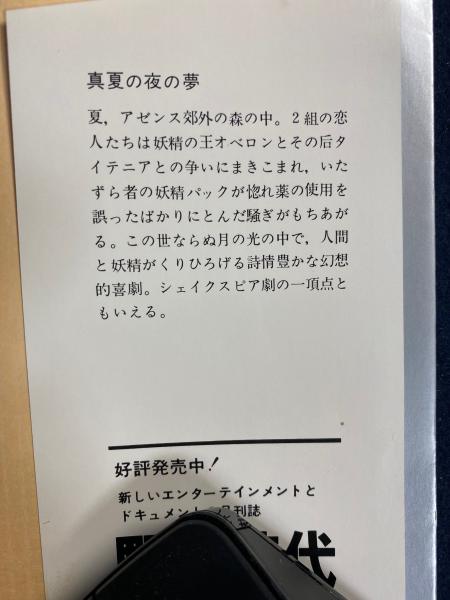 真夏の夜の夢
夏，アゼンス郊外の森の中。２組の恋
人たちは妖精の王オベロンとその后タ
イテニアとの争いにまきこまれ，いた
ずら者の妖精パックが惚れ薬の使用を
誤ったばかりにとんだ騒ぎがもちあが
る。この世ならぬ月の光の中で，人間
と妖精がくりひろげる詩情豊かな幻想
的喜劇。シェイクスピア劇の一頂点と
もいえる。
好評発売中！
新しいエンターテインメントと
ドキュメント 月刊誌
代